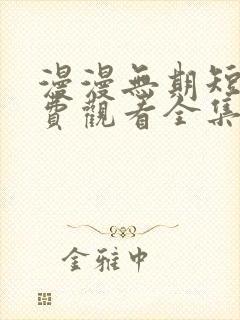 漫漫無期短
費觀看全集
金雅中